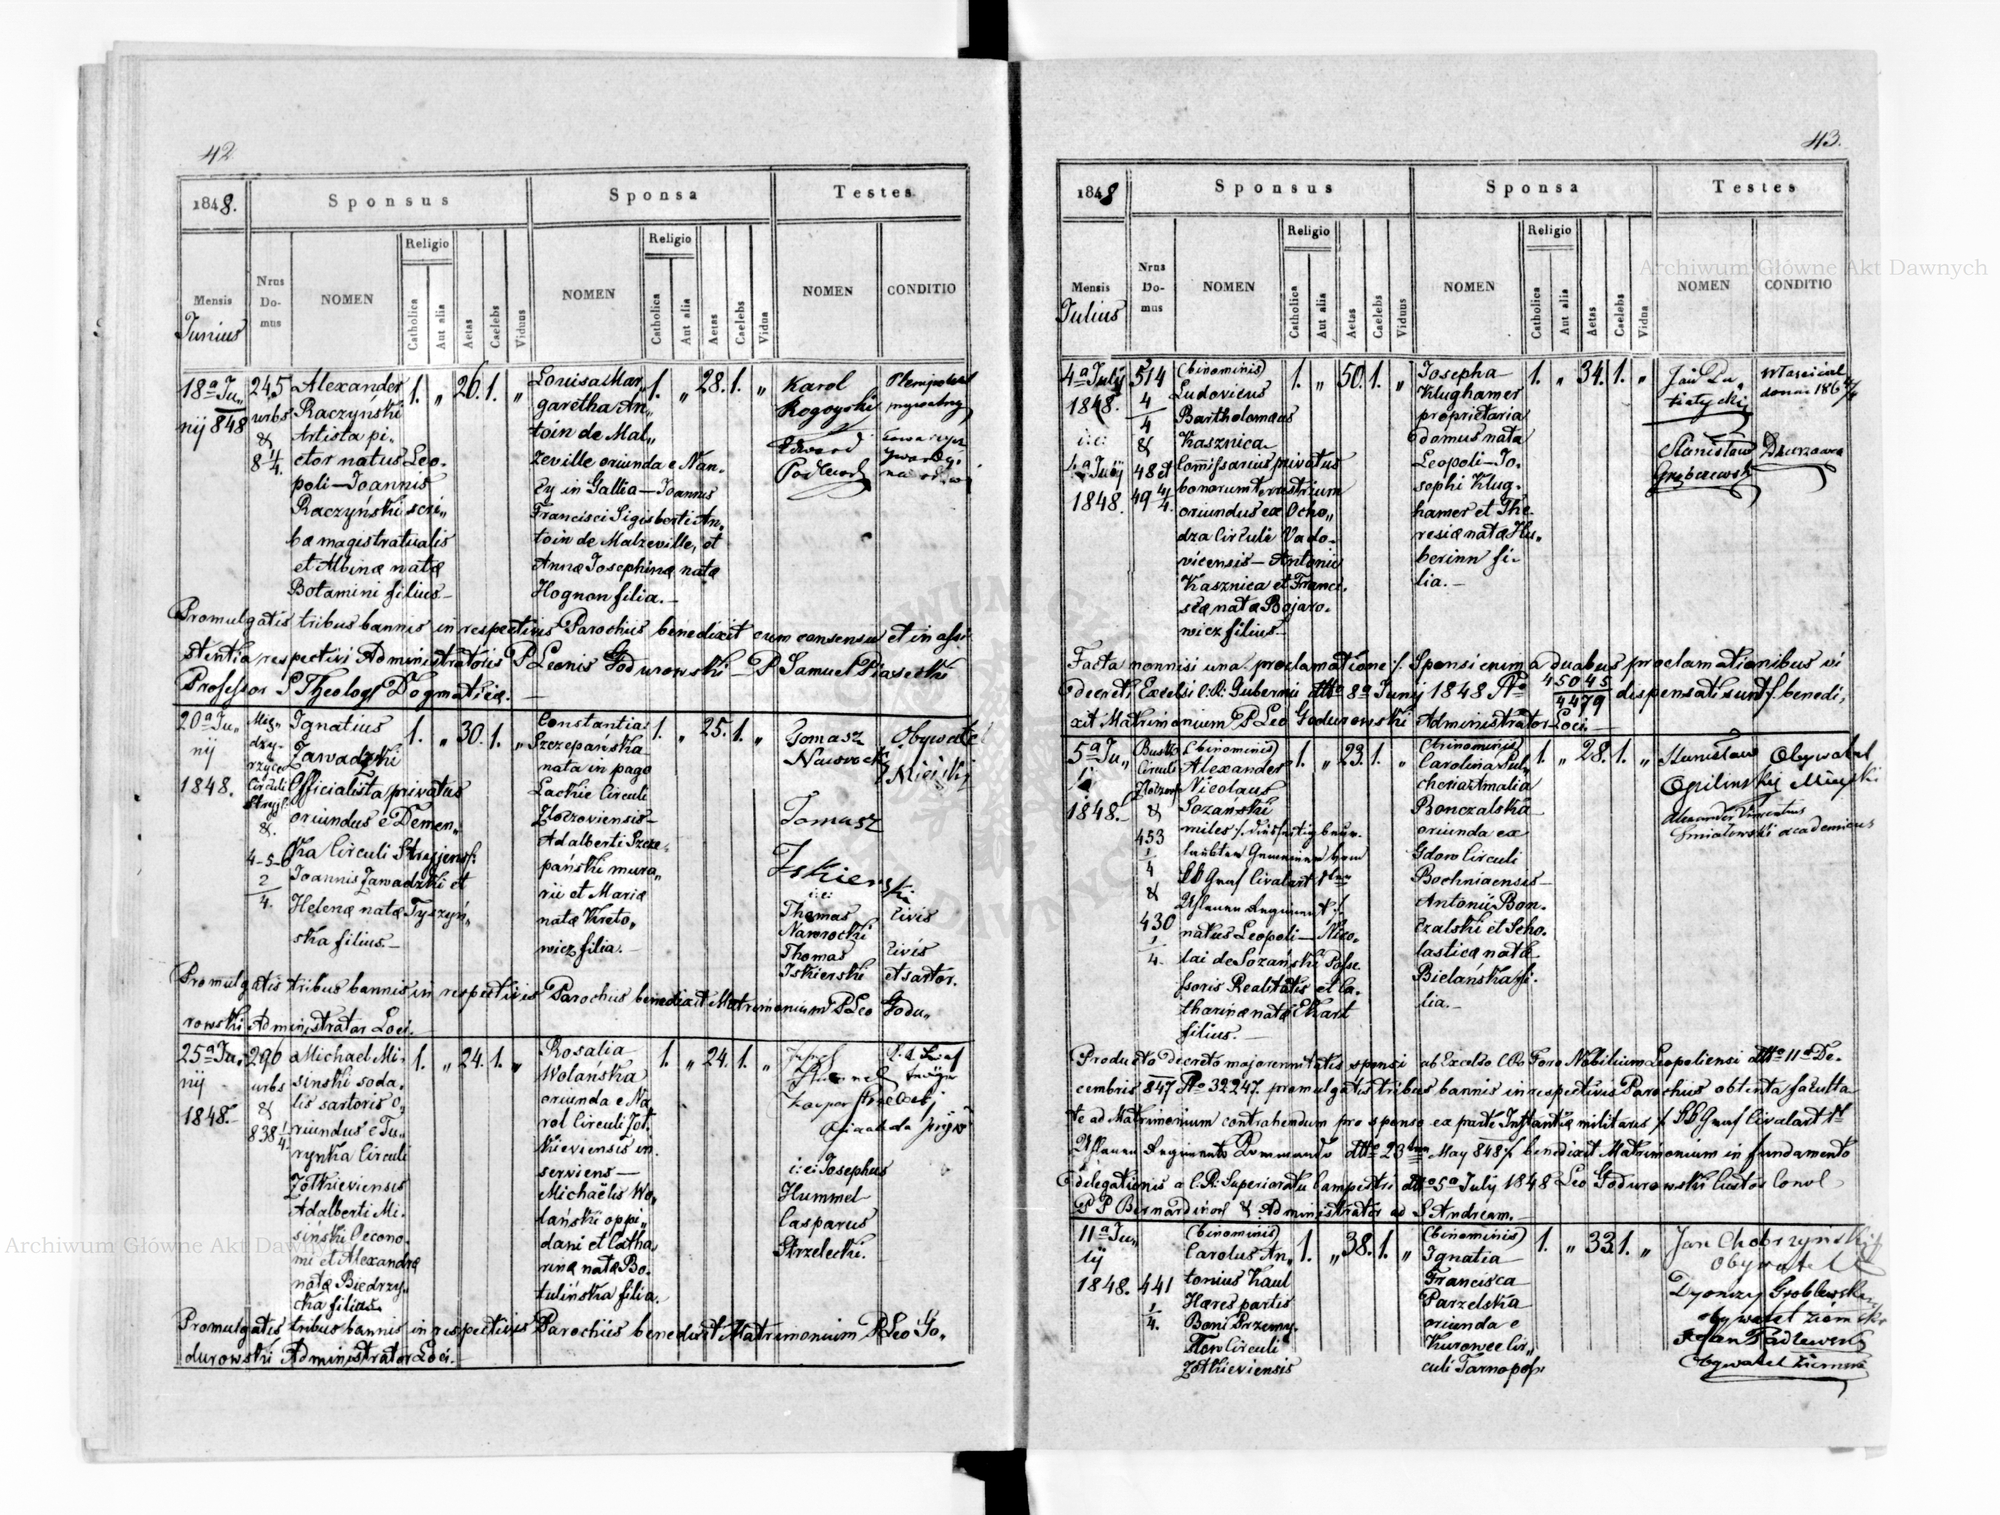 42
1848.
Sponsus
Sponsa
Testes
Mensis
Junius
Nrus
Do-
mus
NOMEN
Religio
Catholica
Aut alia
Aetas
Caelebs
Viduus
NOMEN
Religio
Catholica
Aut alia
Aetas
Caelebs
Vidua
NOMEN
CONDITIO
18ª Ju„
nij 848
245
urbs
&
8 1/4.
Alexander
Raczyński
Artista pi-
ctor natus Leo-
poli—Joannis
Raczyński scri„
bæ magistratualis
et Albinæ natæ
Botamini filius—
1. „ 26. 1. „
Louisa Mar„
garetha An„
toin de Mal„
zeville oriunda e Nan-
cy in Gallia—Joannis
Francisci Sigisberti An„
toin de Malzeville, et
Annæ Josephinæ natæ
Hognon filia.—
1. „ 28. 1. „
Karol
Rogoyski
Edward
Promulgatis tribus bannis in respectivis Parochiis benedixit cum consensu et in assi-
stentia respectivi Administratoris P. Leonis Godurowski P Samuel Piasecki
Professor S Theolog Dogmaticæ.—
20ª Ju„
nij
1848.
Mię„
dzy-
rzyce
Circuli
Stryj.
&.
4-5-6
2/4.
Ignatius
Zawadzki
Officialista privatus
oriundus e Demen„
ka Circuli Stryjens:
Joannis Zawadzki et
Helenæ natæ Tyszyń„
ska filius.—
1. „ 30. 1. „
Constantia
Szczepańska
nata in pago
Lackie Circuli
Złoczoviensis—
Adalberti Szcze„
pański mura„
rii et Mariæ
natæ Kreto„
wicz filia.—
1. „ 25. 1. „
Tomasz
Nawrocki
Obywatel
Miejski
Tomasz
Iskierski
i: e:
Thomas
Nawrocki
civis
Thomas
Iskierski
civis
et sartor.
Promulgatis tribus bannis in respectivis Parochiis benedixit Matrimonium P Leo Godu„
rowski Administrator Loci.—
25ª Ju„
nij
1848.—
296
urbs
&
838 1/4.
Michael Mi-
sinski soda„
lis sartoris o„
riundus e Tu„
rynka Circuli
Żołkieviensis
Adalberti Mi-
siński Oecono-
mi et Alexandræ
natæ Biedrzy„
cka filius.
1. „ 24. 1. „
Rosalia
Wolańska
oriunda e Na„
rol Circuli Żoł-
kieviensis in.
serviens—
Michaëlis Wo„
lański oppi„
dani et Catha„
rinæ natæ Bo-
tulińska filia.
1. „ 24. 1. „
Josef
Hummel
Kasper Strzelecki
i: e: Josephus
Hummel
Casparus
Strzelecki.
Promulgatis tribus bannis in respectivis Parochiis benedixit Matrimonium P Leo Go„
durowski Administrator Loci.—
43.
1848
Sponsus
Sponsa
Testes
Mensis
Julius
Nrus
Do-
mus
NOMEN
Religio
Catholica
Aut alia
Aetas
Caelebs
Viduus
NOMEN
Religio
Catholica
Aut alia
Aetas
Caelebs
Vidua
NOMEN
CONDITIO
4ª July
1848.
i: e:
4ª July
1848.
514
4/4
&
48 et
49 4/4.
(binominis)
Ludovicus
Bartholomæus
Kasznica
Comissarius privatus
bonorum terrestrium
oriundus ex Ocho„
dza Circuli Vado-
vicensis—Antonii
Kasznica et Franci-
scæ nata Bojaro-
wicz filius—
1. „ 50. 1. „
Josepha
Klughamer
proprietaria
domus nata
Leopoli—Jo-
sephi Klug-
hamer et The-
resiæ natæ Hu-
berinn fi-
lia.—
1. „ 34. 1. „
Właściciel
Stanisław
Dzierżawca
Facta nonnisi una proclamatione /. Sponsi enim a duabus proclamationibus vi
decreti Excelsi C: R: Gubernii dtto 8ª Junij 1848 No 45045/4479 dispensati sunt /. benedi„
xit Matrimonium P Leo Godurowski Administrator Loci.—
5ª Ju„
lij
1848.—
Busk
Circuli
Złoczov
&
453
1/4
&
430
1/4.
(binominis)
Alexander
Nicolaus
Sozański
miles
natus Leopoli—Nico„
lai de Sozański Posse.
ssoris Realitatis et Ca-
tharinæ natæ Ekart
filius.—
1. „ 23. 1. „
(binominis)
Carolina Pul„
cheria Amalia
Bonczalska
oriunda ex
Gdow Circuli
Bochniaensis—
Antonii Bon-
czalski et Scho-
lasticæ natæ
Bielańska fi-
lia.—
1. „ 28. 1. „
Stanisław
Opiliński
Obywatel
Miejski
Alexander Vincentius
Śmiałowski academicus
Producto decreto majorennitatis sponsi ab Excelso C R Foro Nobilium Leopoliensi dtto 11ª De-
cembris 847 No 32247. promulgatis tribus bannis in respectivis Parochiis obtenta faculta
te ad Matrimonium contrahendum pro sponso ex parte Instantiæ militaris /. kk Graf Civalart 1t
Uhlanen Regiments Commando dtto 23ten May 848 /. benedixit Matrimonium in fundamento
delegationis a C. R. Superioratu Campestri dtto 5ª July 1848 Leo Godurowski
P P Bernardinor & Administrator ad S Andream.—
11ª Ju„
lij
1848.
441
1/4.
(binominis)
Carolus An„
tonius Kaul
Hæres partis
Boni Przemy-
słow Circuli
Żołkieviensis
1. „ 38. 1. „
(binominis)
Ignatia
Francisca
Parzelska
oriunda e
Kurowce Cir„
culi Tarnopol:
1. „ 33. 1. „
Jan Chobrzyński
Obywatel
Dyonizy Groblewski
obywatel ziemski
Obywatel ziemski
Archiwum Główne Akt Dawnych
Archiwum Główne Akt Dawnych